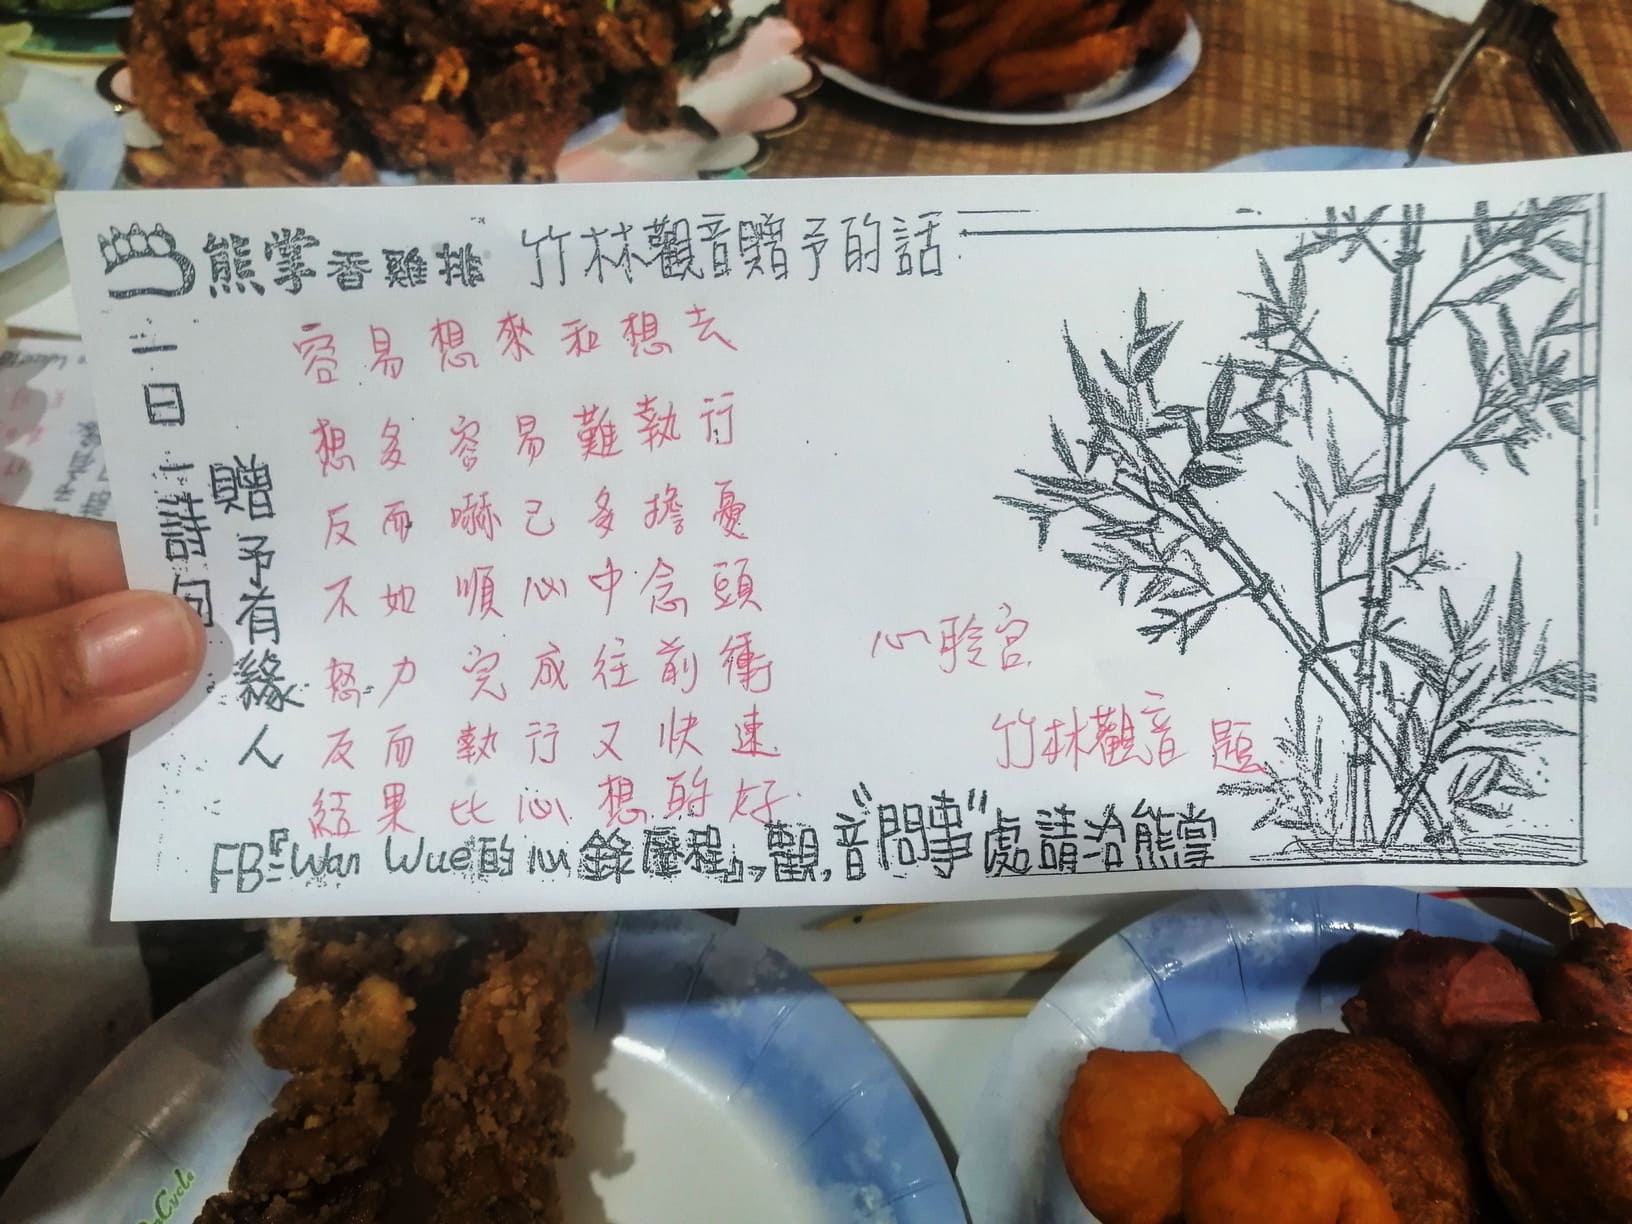 熊掌香雞排 竹林觀音贈予的話:
一日一詩句
贈予有緣人
容易想來和想去
想多容易難執行
反而嚇己多擔憂
不如順心中念頭
努力完成往前衝
反而執行又快速
結果比心想的好
心聆宮
竹林觀音 題
FB=『Wan Wue的心錄歷程』,觀,音"問事"處請洽熊掌